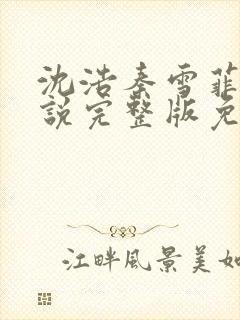 沈浩秦雪菲
說完整版免
江畔风景美如